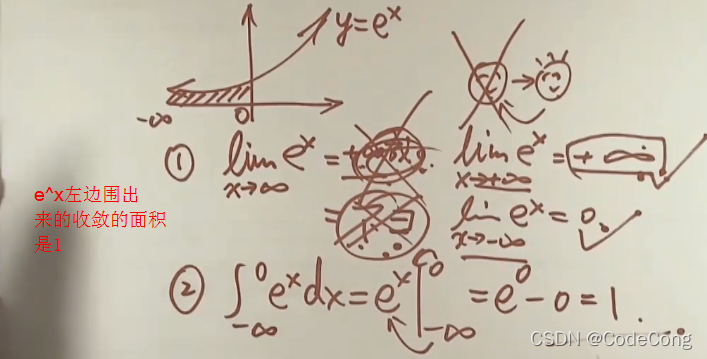 y=eˣ
-∞ 0
① lim eˣ = lim eˣ = +∞
x→∞ x→+∞
= lim eˣ = 0.
x→-∞
e^x左边围出
来的收敛的面积
是1
② ∫₋∞⁰ eˣdx = eˣ|₋∞⁰ = e⁰ - 0 = 1.
CSDN @CodeCong